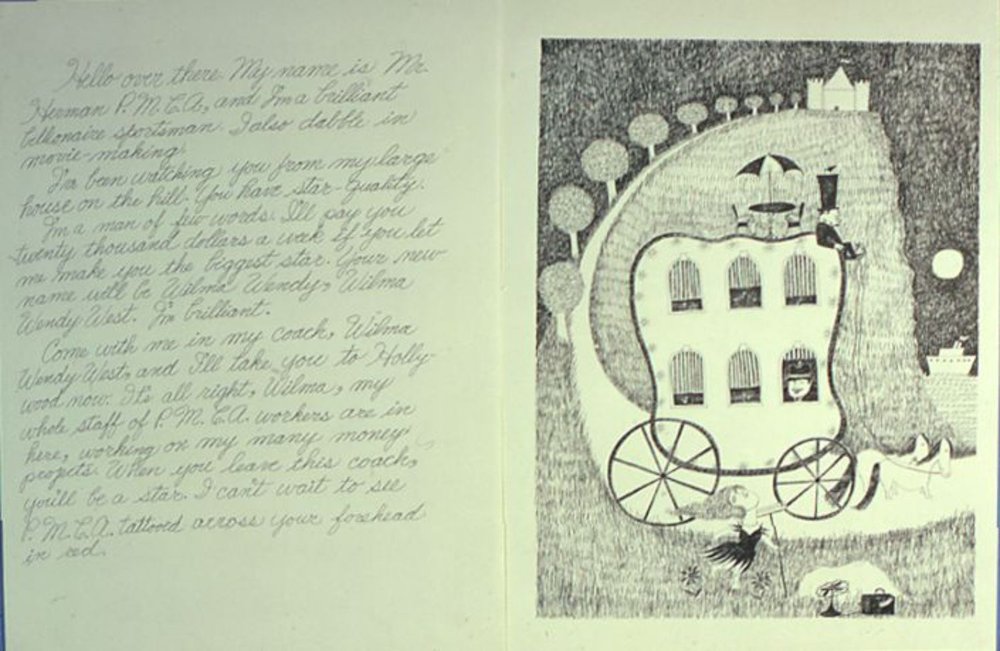 Hello over there. My name is Mr.
Herman P.M.C.A., and I'm a brilliant
billionaire sportsman. I also dabble in
movie-making.
I've been watching you from my large
house on the hill. You have star quality.
I'm a man of few words. I'll pay you
twenty thousand dollars a week if you let
me make you the biggest star. Your new
name will be Wilma Wendy, Wilma
Wendy West. I'm brilliant.
Come with me in my coach, Wilma
Wendy West, and I'll take you to Holly-
wood now. It's all right, Wilma, my
whole staff of P.M.C.A. workers are in
here, working on my many money
projects. When you leave this coach,
you'll be a star. I can't wait to see
P.M.C.A. tattooed across your forehead
in red.